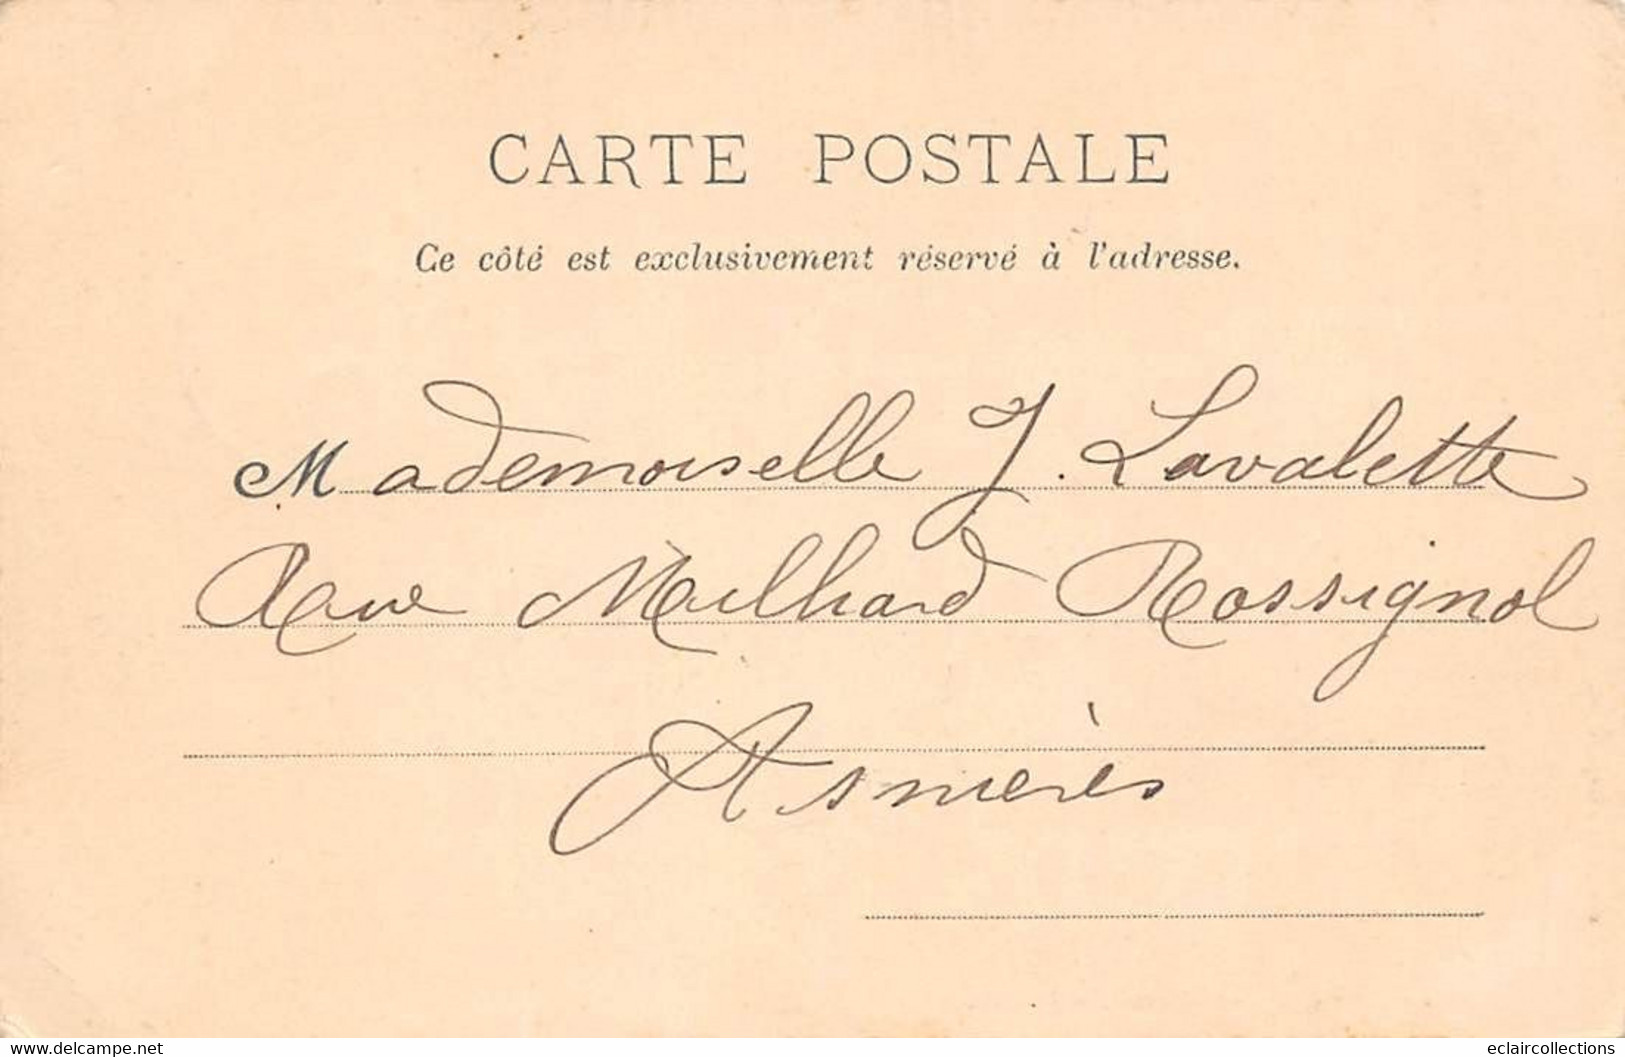 CARTE POSTALE
Ce côté est exclusivement réservé à l'adresse.
Mademoiselle J. Lavalette
Rue Meilhard Rossignol
Asnières
www.delcampe.net
eclaircollections